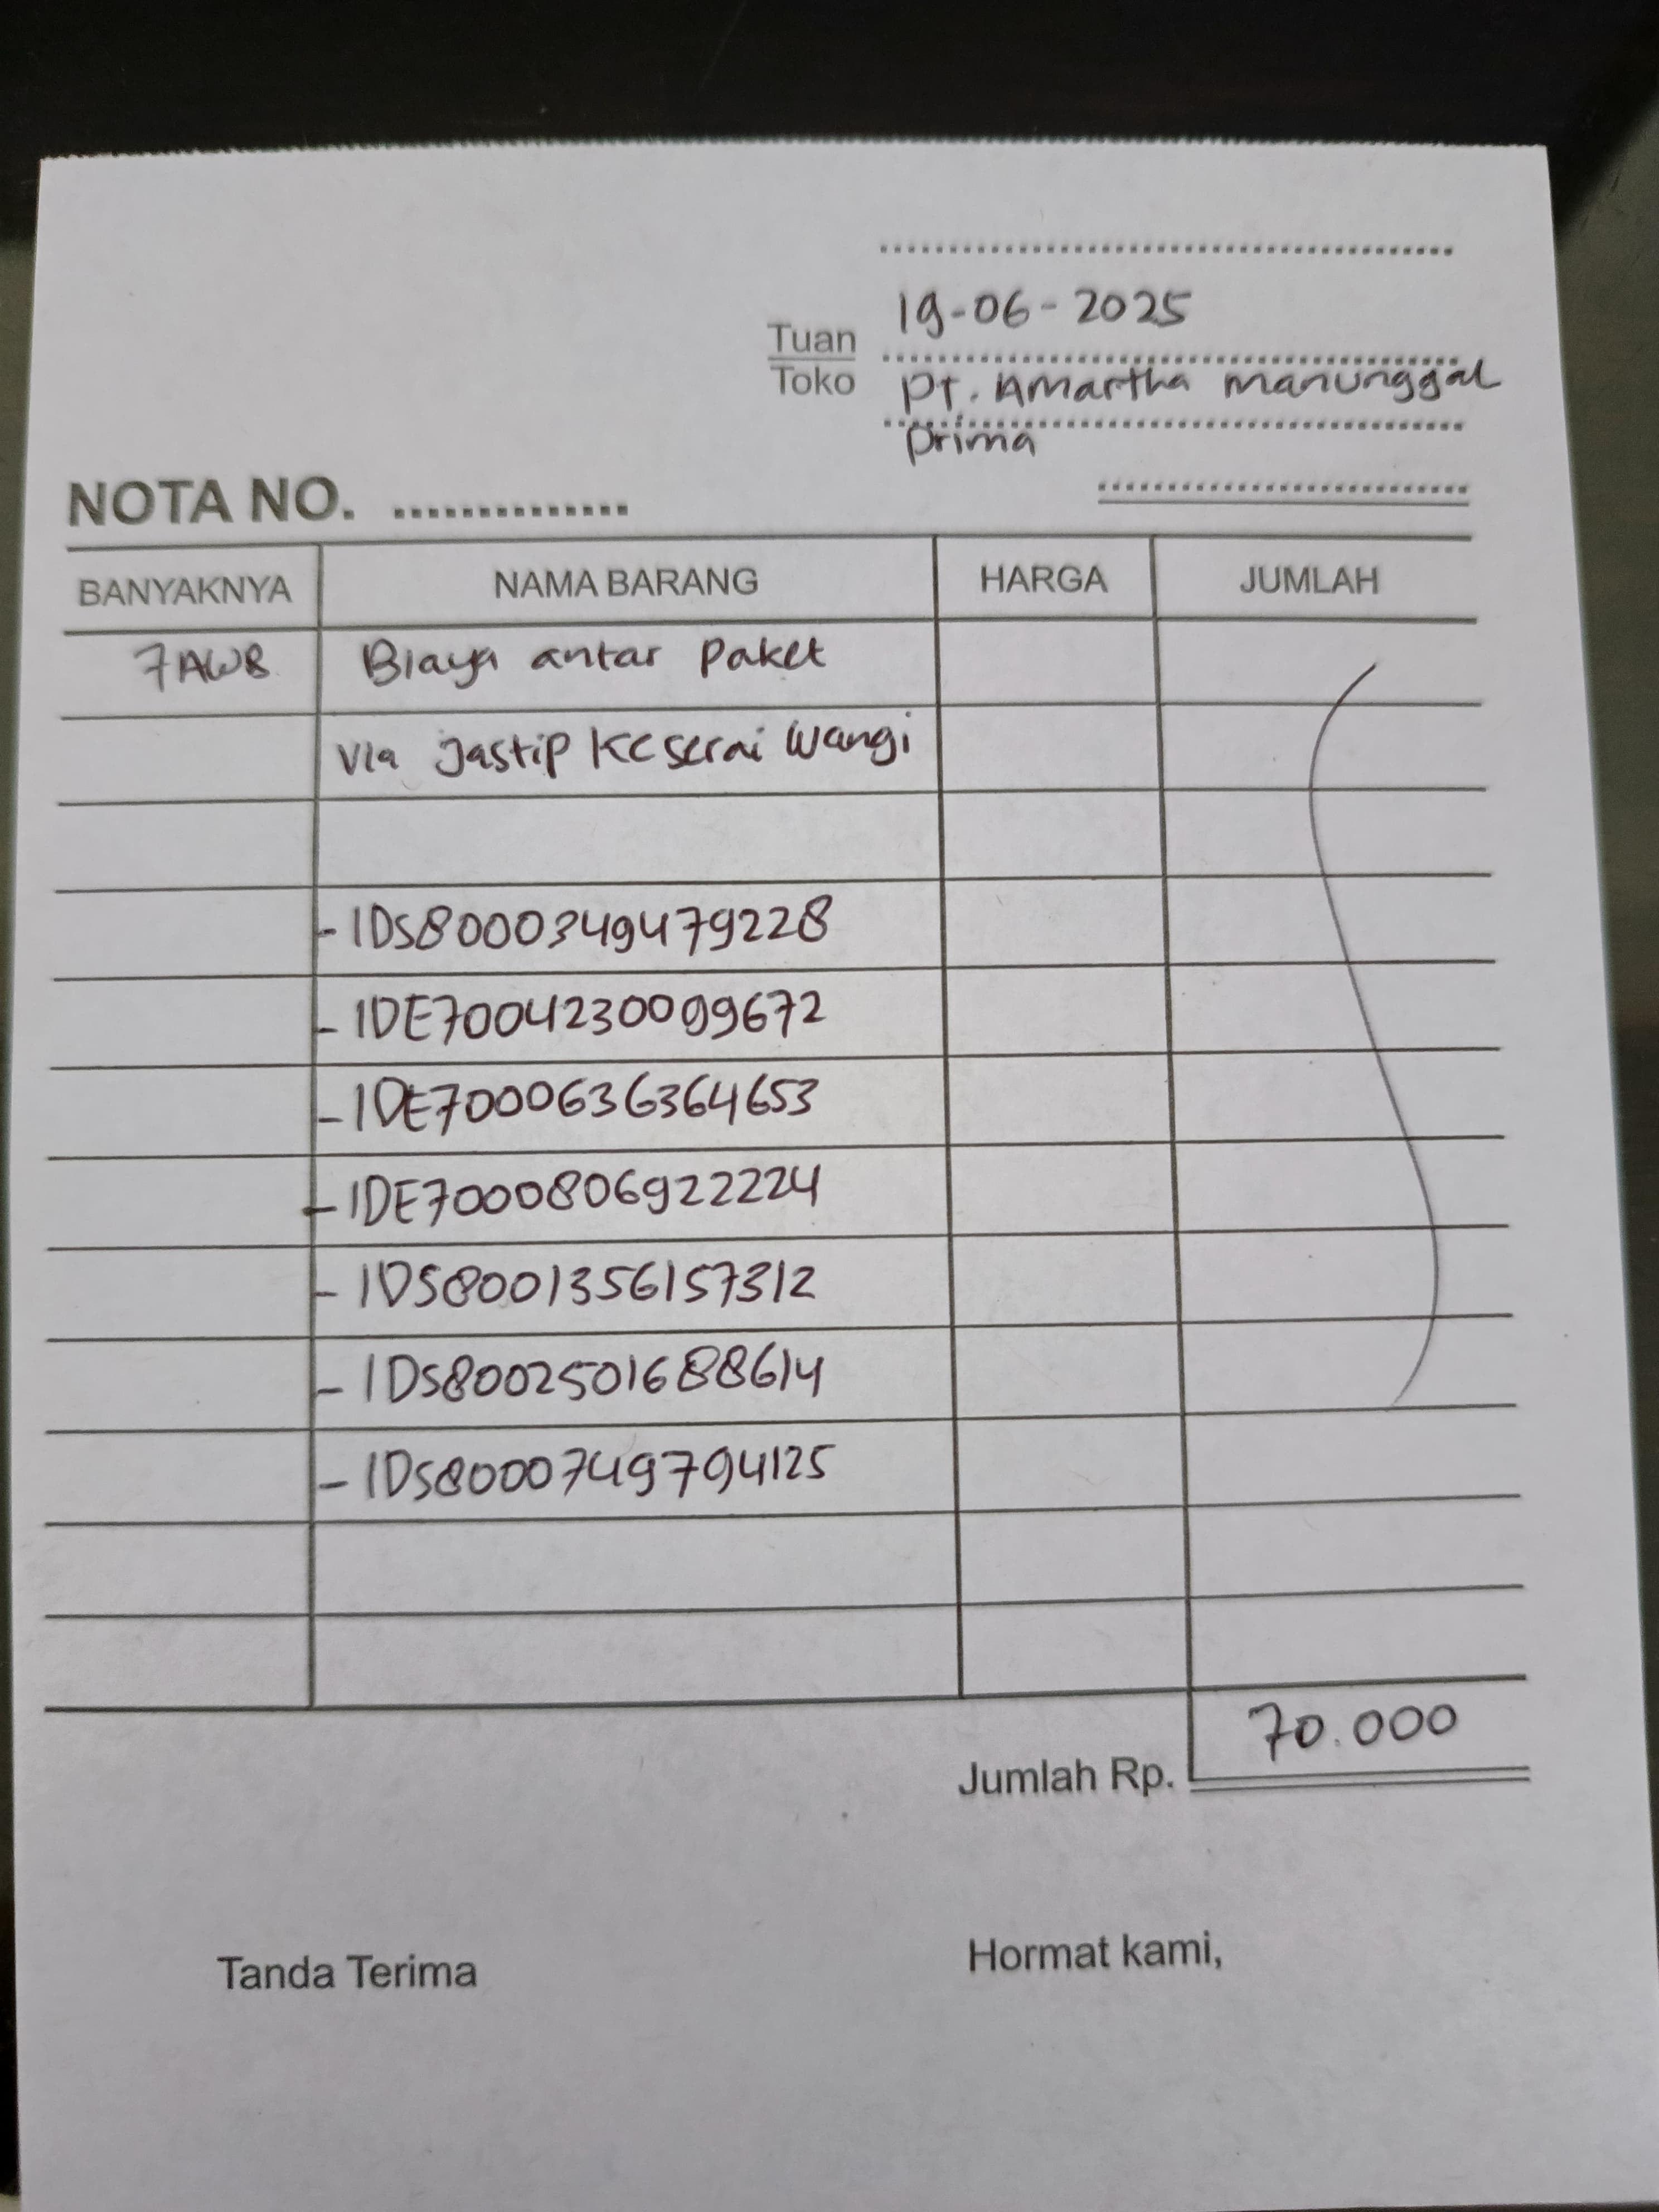 19-06-2025
Tuan
Toko
PT. Amartha manunggal
prima
NOTA NO. ...............
BANYAKNYA NAMA BARANG HARGA JUMLAH
7 AWB Biaya antar Paket
Via Jastip Ke Serai Wangi
- IDS8000349479228
- IDE7004230099672
- IDE7000636364653
- IDE7000806922224
- IDS8001356157312
- IDS8002501688614
- IDS8000749794125
Jumlah Rp. 70.000
Tanda Terima Hormat kami,